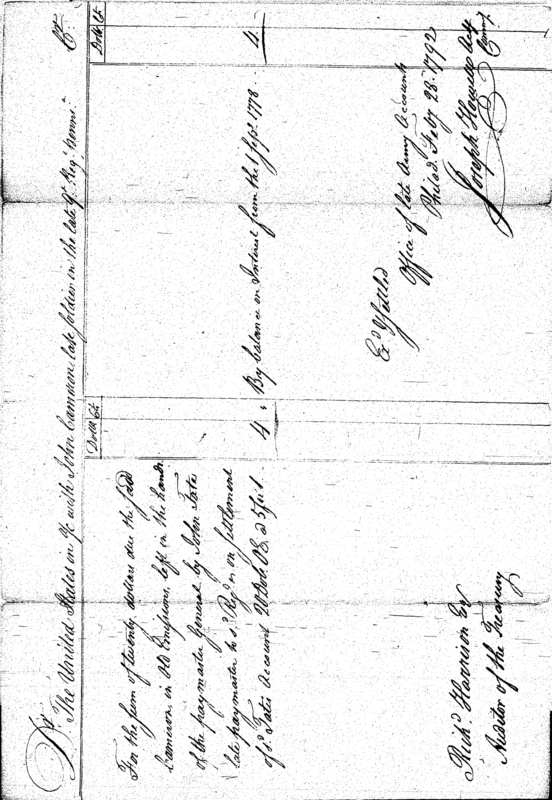 Dr. The United States in a/c with John Cameron late soldier in the late 9th Regt. Penns. Cr.
Dolls Cts
For the sum of twenty dollars due the said
Cameron, in Old Emissions, left in the hands
of the paymaster General by John Tate
late paymaster to sd. Regt. on settlement
of sd. Tates Account 20 Dols O.E. a 5 for 1
4
Dolls Cts
By balance on Interest from the 1 Sept. 1778
4
Exd. & Settled
Office of late Army Accounts
Philad. Feby 28. 1792
Joseph Howell
Richd. Harrison Esq
Auditor of the Treasury